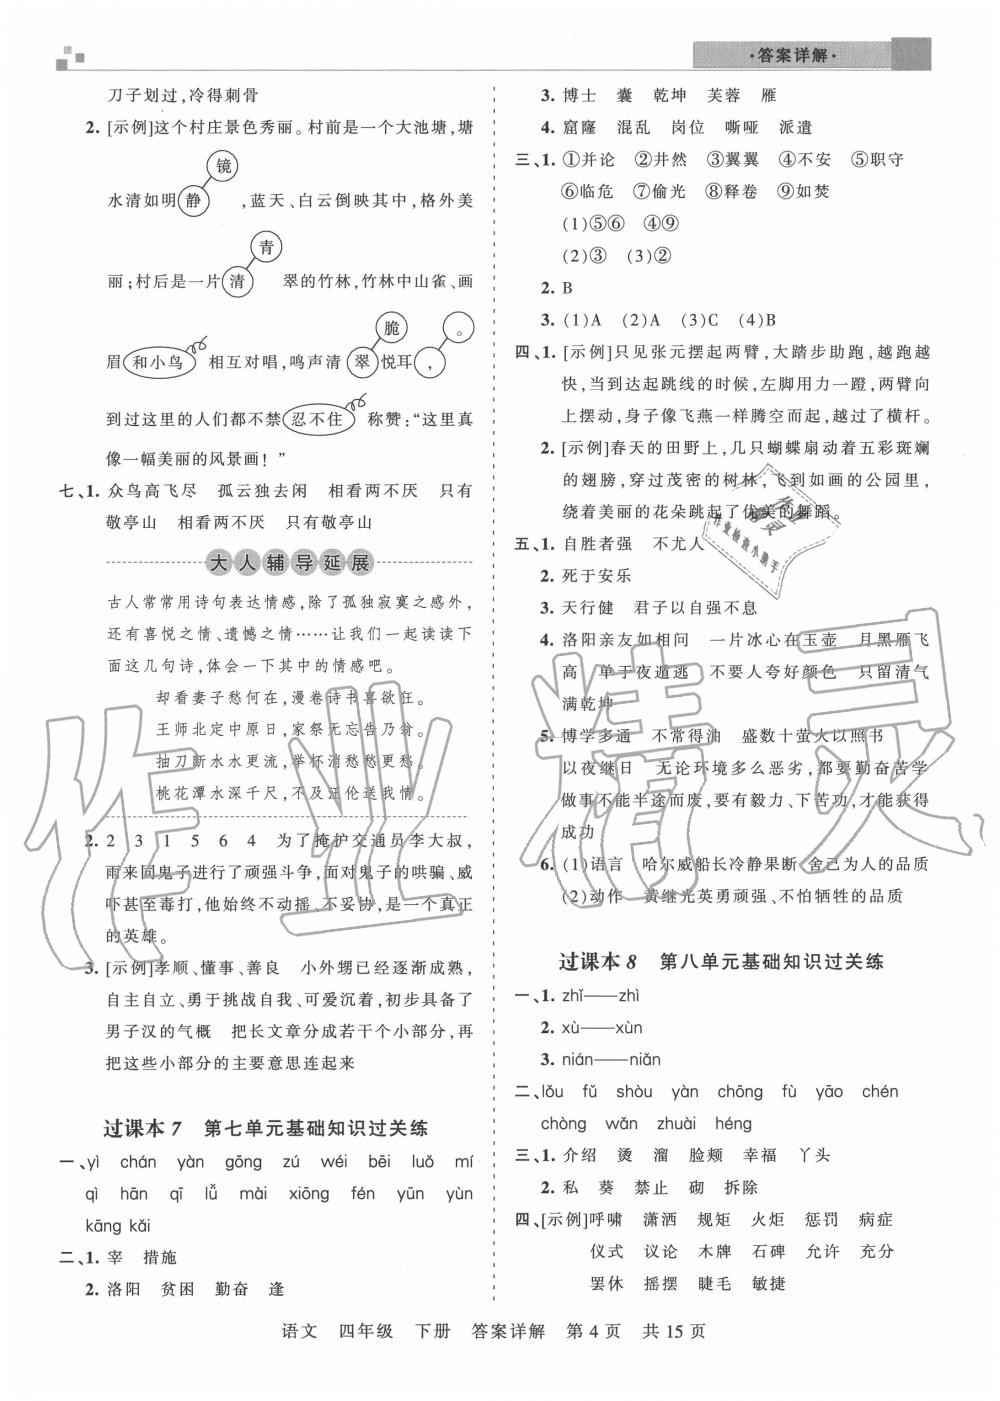 ·答案详解·
刀子划过,冷得刺骨
2. [示例]这个村庄景色秀丽。村前是一个大池塘,塘
镜
水清如明静,蓝天、白云倒映其中,格外美
青
丽;村后是一片清翠的竹林,竹林中山雀、画
脆 。
眉和小鸟相互对唱,鸣声清翠悦耳,
到过这里的人们都不禁忍不住称赞:“这里真
像一幅美丽的风景画!”
七、1. 众鸟高飞尽 孤云独去闲 相看两不厌 只有
敬亭山 相看两不厌 只有敬亭山
大人辅导延展
古人常常用诗句表达情感,除了孤独寂寞之感外,
还有喜悦之情、遗憾之情……让我们一起读读下
面这几句诗,体会一下其中的情感吧。
却看妻子愁何在,漫卷诗书喜欲狂。
王师北定中原日,家祭无忘告乃翁。
抽刀断水水更流,举杯消愁愁更愁。
桃花潭水深千尺,不及汪伦送我情。
2. 2 3 1 5 6 4 为了掩护交通员李大叔,
雨来同鬼子进行了顽强斗争,面对鬼子的哄骗、威
吓甚至毒打,他始终不动摇、不妥协,是一个真正
的英雄。
3. [示例]孝顺、懂事、善良 小外甥已经逐渐成熟,
自主自立、勇于挑战自我、可爱沉着,初步具备了
男子汉的气概 把长文章分成若干个小部分,再
把这些小部分的主要意思连起来
过课本 7 第七单元基础知识过关练
一、yì chán yàn gōng zú wéi bēi luǒ mí
qì hān qī lǚ mài xiōng fén yūn yùn
kāng kǎi
二、1. 宰 措施
2. 洛阳 贫困 勤奋 逢
3. 博士 囊 乾坤 芙蓉 雁
4. 窟窿 混乱 岗位 嘶哑 派遣
三、1. ①并论 ②井然 ③翼翼 ④不安 ⑤职守
⑥临危 ⑦偷光 ⑧释卷 ⑨如焚
(1)⑤⑥ ④⑨
(2)③ (3)②
2. B
3. (1)A (2)A (3)C (4)B
四、1. [示例]只见张元摆起两臂,大踏步助跑,越跑越
快,当到达起跳线的时候,左脚用力一蹬,两臂向
上摆动,身子像飞燕一样腾空而起,越过了横杆。
2. [示例]春天的田野上,几只蝴蝶扇动着五彩斑斓
的翅膀,穿过茂密的树林,飞到如画的公园里,
绕着美丽的花朵跳起了优美的舞蹈。
五、1. 自胜者强 不尤人
2. 死于安乐
3. 天行健 君子以自强不息
4. 洛阳亲友如相问 一片冰心在玉壶 月黑雁飞
高 单于夜遁逃 不要人夸好颜色 只留清气
满乾坤
5. 博学多通 不常得油 盛数十萤火以照书
以夜继日 无论环境多么恶劣,都要勤奋苦学
做事不能半途而废,要有毅力、下苦功,才能获得
成功
6. (1)语言 哈尔威船长冷静果断、舍己为人的品质
(2)动作 黄继光英勇顽强、不怕牺牲的品质
过课本 8 第八单元基础知识过关练
一、1. zhǐ——zhì
2. xù——xùn
3. nián——niǎn
二、lǒu fǔ shòu yàn chōng fù yāo chén
chòng wǎn zhuài héng
三、1. 介绍 烫 溜 脸颊 幸福 丫头
2. 私 葵 禁止 砌 拆除
四、[示例]呼啸 潇洒 规矩 火炬 惩罚 病症
仪式 议论 木牌 石碑 允许 充分
罢休 摇摆 睫毛 敏捷
语文 四年级 下册 答案详解 第 4 页 共 15 页
作业精灵
作业精灵
作业检查小助手